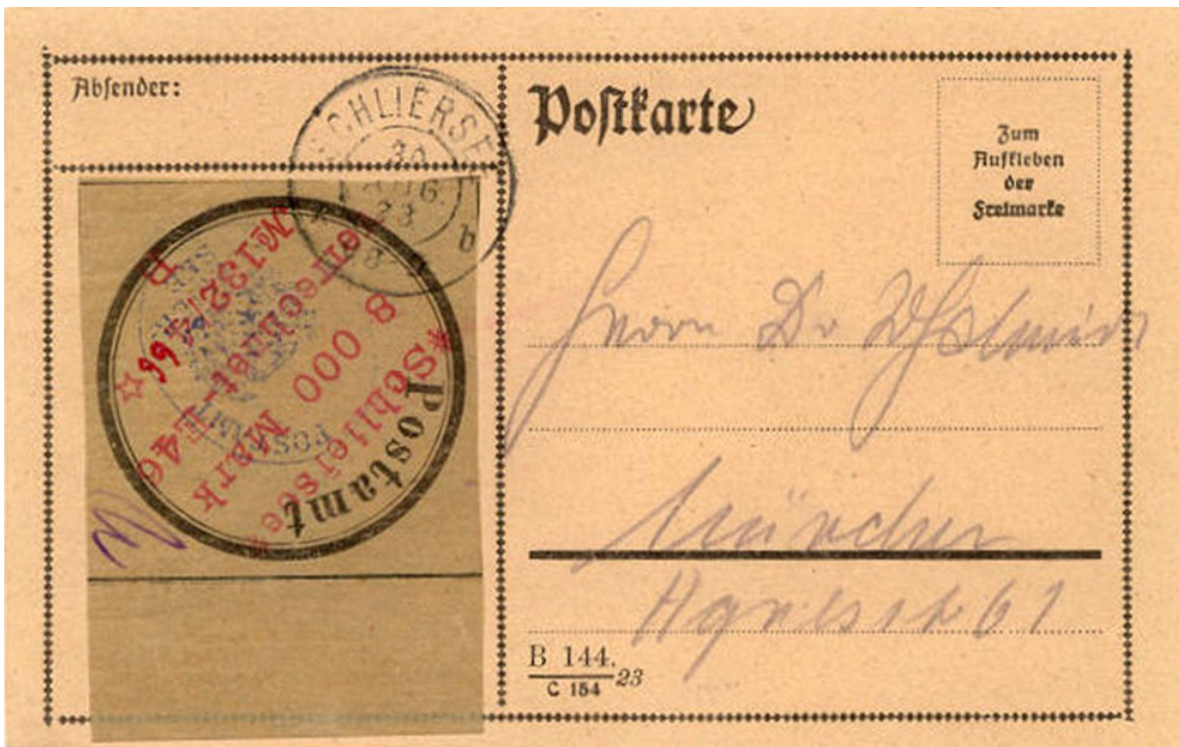 Absender:
SCHLIERSE
30
AUG.
23
b
Postkarte
Zum
Aufkleben
der
Freimarke
Postamt
*Schliersee*
8 000 Mark
POSTAMT
Herrn Dr
München
Agnesstr 61
B 144.
C 154
23